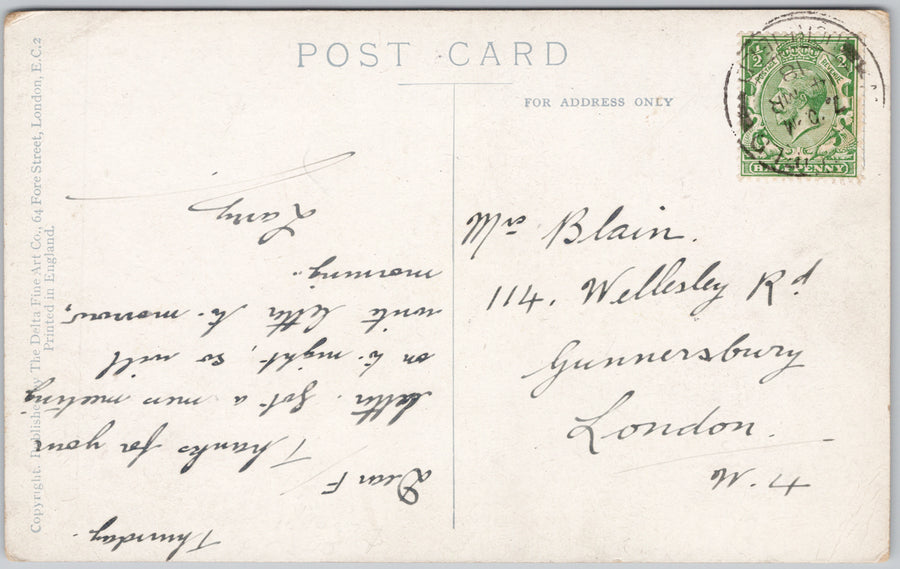 POST CARD
FOR ADDRESS ONLY
Copyright. Published by The Delta Fine Art Co., 64 Fore Street, London, E.C.2
Printed in England.
Thursday.
Dear F
Thanks for your
letter. Got a men meeting
on to-night, so will
write letter to-morrow,
morning.
Larry
Mrs Blain.
114. Wellesley Rd
Gunnersbury
London.
W.4
POSTAGE REVENUE
1/2
HALFPENNY
4 MR